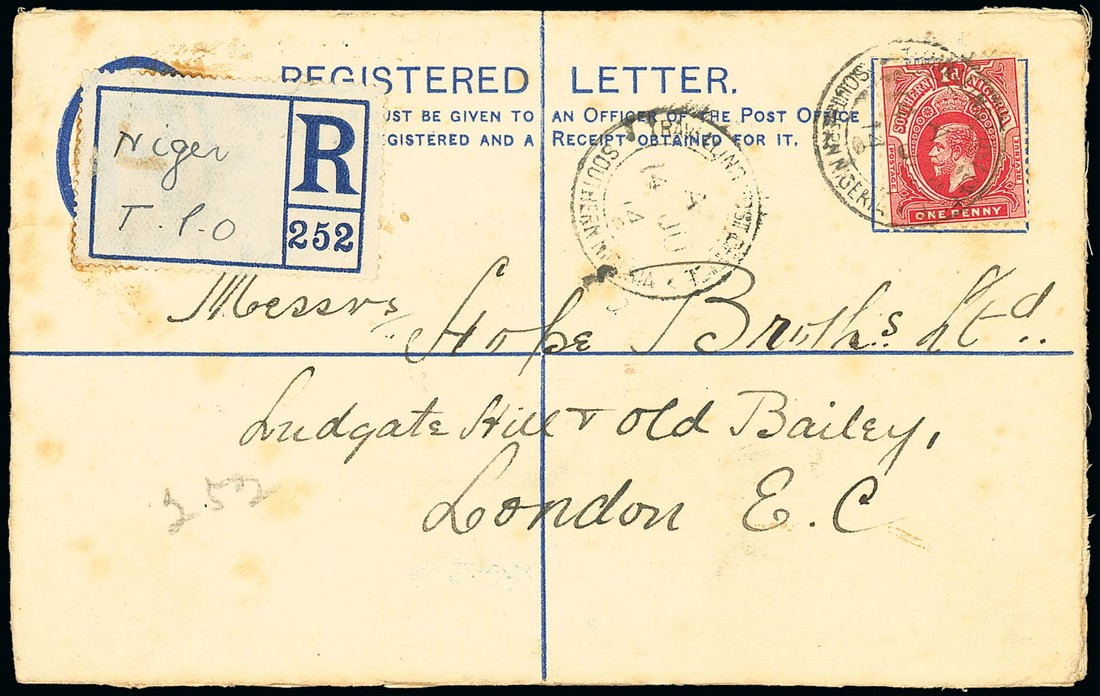 REGISTERED LETTER.
UST BE GIVEN TO AN OFFICER OF THE POST OFFICE
EGISTERED AND A RECEIPT OBTAINED FOR IT.
Niger
T. P. O
R
252
TRAVELLING POST OFFICE
A
JU
14
14
SOUTHERN NIGERIA
SOUTHERN NIGERIA
SOUTHERN NIGERIA
1d
POSTAGE
REVENUE
ONE PENNY
Messrs Hope Broths. Ltd.
Ludgate Hill & Old Bailey,
London E. C